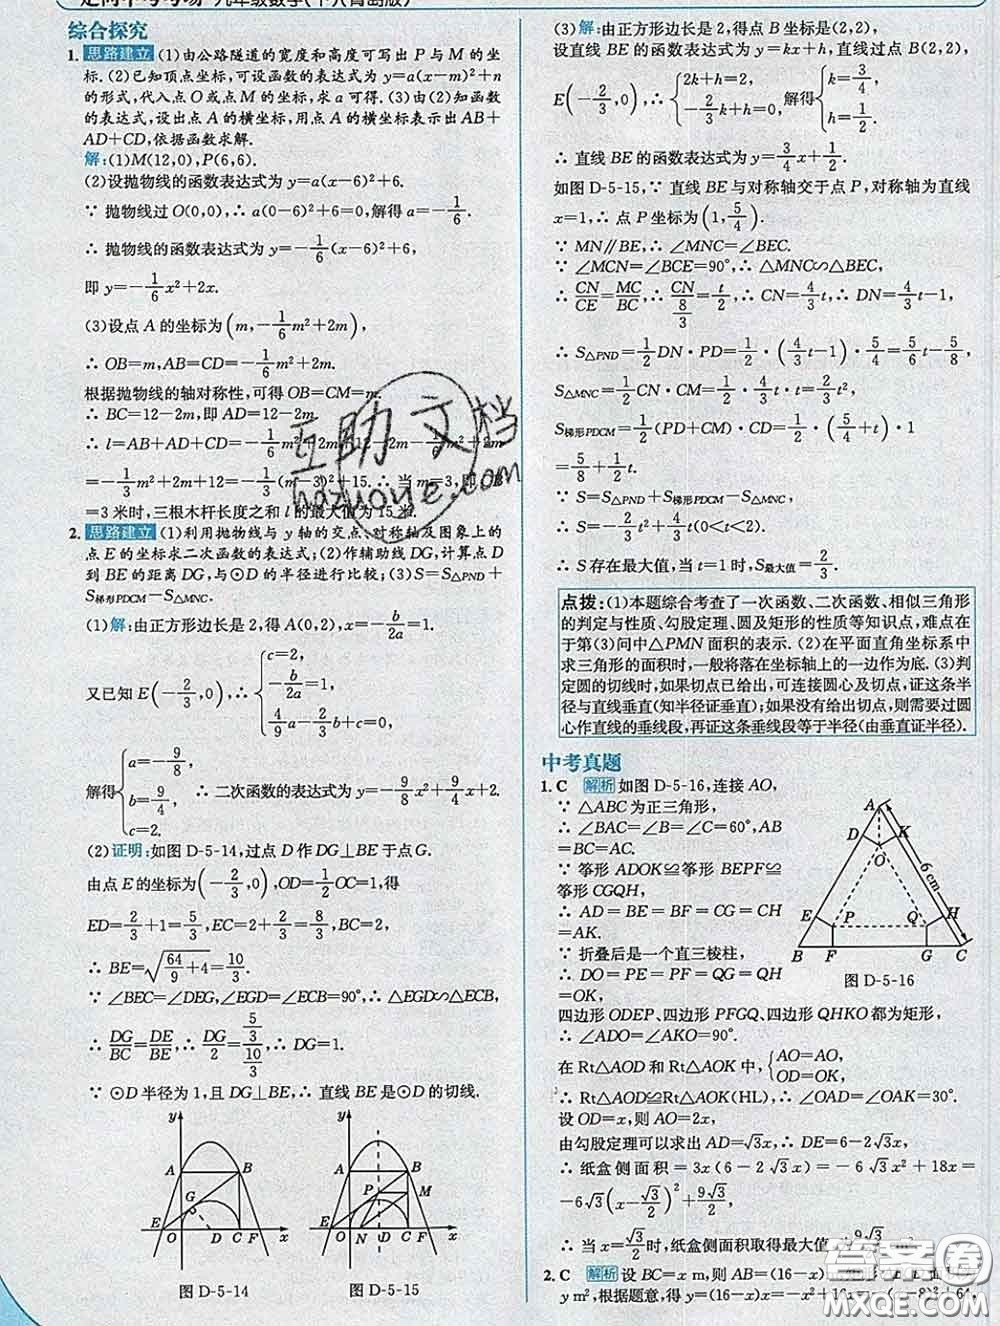 走向中考考场 九年级数学(下)(青岛版)
综合探究
1. 思路建立 (1)由公路隧道的宽度和高度可写出 P 与 M 的坐
标. (2)已知顶点坐标,可设函数的表达式为 y=a(x-m)²+n
的形式,代入点 O 或点 M 的坐标,求 a 可得. (3)由(2)知函数
的表达式,设出点 A 的横坐标,用点 A 的横坐标表示出 AB+
AD+CD,依据函数求解.
解:(1)M(12,0),P(6,6).
(2)设抛物线的函数表达式为 y=a(x-6)²+6.
∵ 抛物线过 O(0,0),∴ a(0-6)²+6=0,解得 a=-1/6.
∴ 抛物线的函数表达式为 y=-1/6(x-6)²+6,
即 y=-1/6x²+2x.
(3)设点 A 的坐标为(m,-1/6m²+2m),
∴ OB=m,AB=CD=-1/6m²+2m.
根据抛物线的轴对称性,可得 OB=CM=m.
∴ BC=12-2m,即 AD=12-2m.
∴ l=AB+AD+CD=-1/6m²+2m+12-2m-1/6m²+2m
=-1/3m²+2m+12=-1/3(m-3)²+15. ∴ 当 m=3,即 OB
=3 米时,三根木杆长度之和 l 的最大值为 15 米.
2. 思路建立 (1)利用抛物线与 y 轴的交点、对称轴及图象上的
点 E 的坐标求二次函数的表达式;(2)作辅助线 DG,计算点 D
到 BE 的距离 DG,与⊙D 的半径进行比较;(3)S=S△PND+
S梯形PDCM-S△MNC.
(1)解:由正方形边长是 2,得 A(0,2),x=-b/2a=1.
又已知 E(-2/3,0),∴ {c=2, -b/2a=1, 4/9a-2/3b+c=0.
解得{a=-9/8, b=9/4, c=2. ∴ 二次函数的表达式为 y=-9/8x²+9/4x+2.
(2)证明:如图 D-5-14,过点 D 作 DG⊥BE 于点 G.
由点 E 的坐标为(-2/3,0),OD=1/2OC=1,得
ED=2/3+1=5/3,EC=2+2/3=8/3,BC=2,
∴ BE=√(64/9+4)=10/3.
∵ ∠BEC=∠DEG,∠EGD=∠ECB=90°,∴ △EGD∽△ECB,
∴ DG/BC=DE/BE,∴ DG/2=(5/3)/(10/3),∴ DG=1.
∵ ⊙D 半径为 1,且 DG⊥BE,∴ 直线 BE 是⊙D 的切线.
y A B G E O D C F x
图 D-5-14
y A B P M E O N D C F x
图 D-5-15
(3)解:由正方形边长为 2,得点 B 的坐标为(2,2),
设直线 BE 的函数表达式为 y=kx+h,直线过点 B(2,2),
E(-2/3,0),∴ {2k+h=2, -2/3k+h=0, 解得{k=3/4, h=1/2.
∴ 直线 BE 的函数表达式为 y=3/4x+1/2.
如图 D-5-15,∵ 直线 BE 与对称轴交于点 P,对称轴为直线
x=1,∴ 点 P 坐标为(1,5/4).
∵ MN∥BE,∴ ∠MNC=∠BEC.
∵ ∠MCN=∠BCE=90°,∴ △MNC∽△BEC,
∴ CN/CE=MC/BC,∴ CN/(8/3)=t/2,∴ CN=4/3t,∴ DN=4/3t-1,
∴ S△PND=1/2DN·PD=1/2·(4/3t-1)·5/4=5/6t-5/8,
S△MNC=1/2CN·CM=1/2·4/3t·t=2/3t²,
S梯形PDCM=1/2(PD+CM)·CD=1/2·(5/4+t)·1
=5/8+1/2t.
∵ S=S△PND+S梯形PDCM-S△MNC,
∴ S=-2/3t²+4/3t(0<t<2).
∴ S 存在最大值,当 t=1 时,S最大值=2/3.
点拨:(1)本题综合考查了一次函数、二次函数、相似三角形
的判定与性质、勾股定理、圆及矩形的性质等知识点,难点在
于第(3)问中△PMN 面积的表示. (2)在平面直角坐标系中
求三角形的面积时,一般将落在坐标轴上的一边作为底. (3)判
定圆的切线时,如果切点已给出,可连接圆心及切点,证这条半
径与直线垂直(知半径证垂直);如果没有给出切点,则需要过圆
心作直线的垂线段,再证这条垂线段等于半径(由垂直证半径).
中考真题
1. C 解析 如图 D-5-16,连接 AO,
∵ △ABC 为正三角形,
∴ ∠BAC=∠B=∠C=60°,AB
=BC=AC.
∵ 筝形 ADOK≌筝形 BEPF≌
筝形 CGQH,
∴ AD=BE=BF=CG=CH
=AK.
∵ 折叠后是一个直三棱柱,
∴ DO=PE=PF=QG=QH
=OK,
四边形 ODEP、四边形 PFGQ、四边形 QHKO 都为矩形,
∴ ∠ADO=∠AKO=90°.
A D K O 6 cm E P Q H B F G C
图 D-5-16
在 Rt△AOD 和 Rt△AOK 中,{AO=AO, OD=OK,
∴ Rt△AOD≌Rt△AOK(HL),∴ ∠OAD=∠OAK=30°.
设 OD=x,则 AO=2x,
由勾股定理可以求出 AD=√3x,∴ DE=6-2√3x,
∴ 纸盒侧面积=3x(6-2√3x)=-6√3x²+18x=
-6√3(x-√3/2)²+9√3/2,
∴ 当 x=√3/2时,纸盒侧面积取得最大值 9√3/2 cm².
2. C 解析 设 BC=x m,则 AB=(16-x) m,
y m²,根据题意,得 y=(16-x)x=-x²+16x=-(x-8)²+64,
互助文档
hazuoye.com
答案圈
MXQE.COM